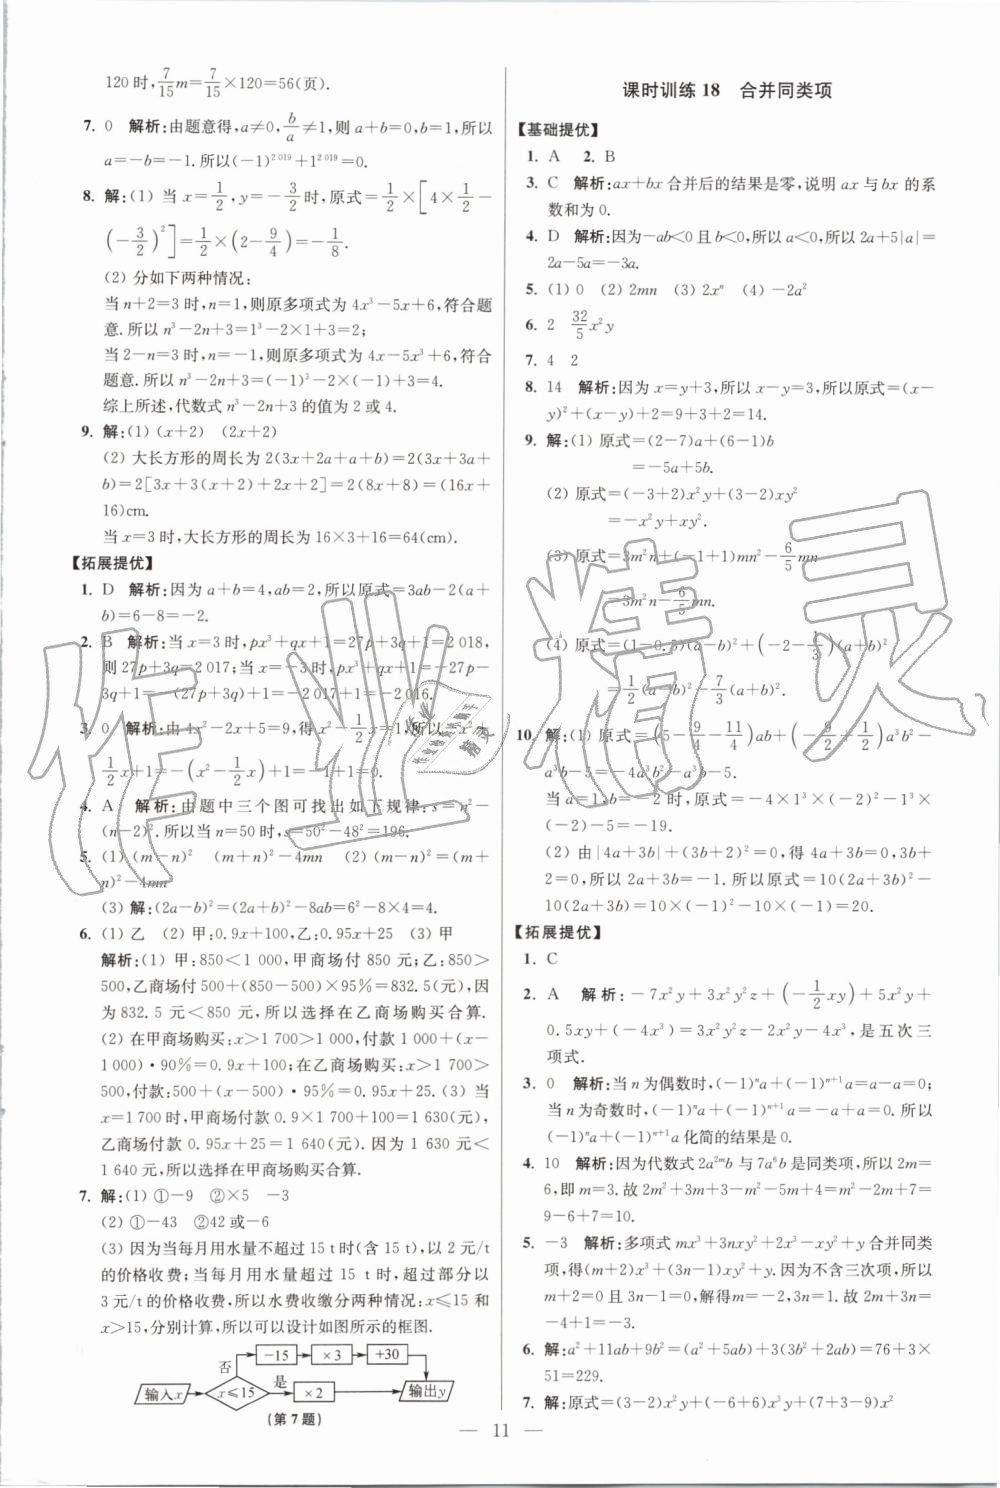 120时,7/15 m=7/15×120=56(页).
7. 0 解析:由题意得,a≠0,b/a≠1,则a+b=0,b=1,所以
a=-b=-1.所以(-1)^2019+1^2019=0.
8. 解:(1) 当x=1/2,y=-3/2时,原式=1/2×[4×1/2-
(-3/2)²]=1/2×(2-9/4)=-1/8.
(2) 分如下两种情况:
当n+2=3时,n=1,则原多项式为4x³-5x+6,符合题
意.所以n³-2n+3=1³-2×1+3=2;
当2-n=3时,n=-1,则原多项式为4x-5x³+6,符合
题意.所以n³-2n+3=(-1)³-2×(-1)+3=4.
综上所述,代数式n³-2n+3的值为2或4.
9. 解:(1) (x+2) (2x+2)
(2) 大长方形的周长为2(3x+2a+a+b)=2(3x+3a+
b)=2[3x+3(x+2)+2x+2]=2(8x+8)=(16x+
16)cm.
当x=3时,大长方形的周长为16×3+16=64(cm).
【拓展提优】
1. D 解析:因为a+b=4,ab=2,所以原式=3ab-2(a+
b)=6-8=-2.
2. B 解析:当x=3时,px³+qx+1=27p+3q+1=2 018,
则27p+3q=2 017;当x=-3时,px³+qx+1=-27p-
3q+1=-(27p+3q)+1=-2 017+1=-2 016.
3. 0 解析:由4x²-2x+5=9,得x²-1/2x=1,所以-x²+
1/2x+1=-(x²-1/2x)+1=-1+1=0.
4. A 解析:由题中三个图可找出如下规律:s=n²-
(n-2)².所以当n=50时,s=50²-48²=196.
5. (1) (m-n)² (m+n)²-4mn (2) (m-n)²=(m+
n)²-4mn
(3) 解:(2a-b)²=(2a+b)²-8ab=6²-8×4=4.
6. (1) 乙 (2) 甲:0.9x+100,乙:0.95x+25 (3) 甲
解析:(1) 甲:850<1 000,甲商场付850元;乙:850>
500,乙商场付500+(850-500)×95%=832.5(元),因
为832.5元<850元,所以选择在乙商场购买合算.
(2) 在甲商场购买:x>1 700>1 000,付款1 000+(x-
1 000)·90%=0.9x+100;在乙商场购买:x>1 700>
500,付款:500+(x-500)·95%=0.95x+25. (3) 当
x=1 700时,甲商场付款0.9×1 700+100=1 630(元),
乙商场付款0.95x+25=1 640(元).因为1 630元<
1 640元,所以选择在甲商场购买合算.
7. 解:(1) ①-9 ②×5 -3
(2) ①-43 ②42或-6
(3) 因为当每月用水量不超过15 t时(含15 t),以2元/t
的价格收费;当每月用水量超过15 t时,超过部分以
3元/t的价格收费,所以水费收缴分两种情况:x≤15和
x>15,分别计算,所以可以设计如图所示的框图.
否 -15 ×3 +30
输入x x≤15 是 ×2 输出y
(第7题)
课时训练18 合并同类项
【基础提优】
1. A 2. B
3. C 解析:ax+bx合并后的结果是零,说明ax与bx的系
数和为0.
4. D 解析:因为-ab<0且b<0,所以a<0,所以2a+5|a|=
2a-5a=-3a.
5. (1) 0 (2) 2mn (3) 2xⁿ (4) -2a²
6. 2 32/5x²y
7. 4 2
8. 14 解析:因为x=y+3,所以x-y=3,所以原式=(x-
y)²+(x-y)+2=9+3+2=14.
9. 解:(1) 原式=(2-7)a+(6-1)b
=-5a+5b.
(2) 原式=(-3+2)x²y+(3-2)xy²
=-x²y+xy².
(3) 原式=3m²n+(-1+1)mn²-6/5mn
=3m²n-6/5mn.
(4) 原式=(1-0.5)(a-b)²+(-2-1/3)(a+b)²
=1/2(a-b)²-7/3(a+b)².
10. 解:(1) 原式=(5-9/4-11/4)ab+(-9/2+1/2)a³b²-
a³b-5=-4a³b²-a³b-5.
当a=1,b=-2时,原式=-4×1³×(-2)²-1³×
(-2)-5=-19.
(2) 由|4a+3b|+(3b+2)²=0,得4a+3b=0,3b+
2=0,所以2a+3b=-1.所以原式=10(2a+3b)²-
10(2a+3b)=10×(-1)²-10×(-1)=20.
【拓展提优】
1. C
2. A 解析:-7x²y+3x²y²z+(-1/2xy)+5x²y+
0.5xy+(-4x³)=3x²y²z-2x²y-4x³,是五次三
项式.
3. 0 解析:当n为偶数时,(-1)ⁿa+(-1)ⁿ⁺¹a=a-a=0;
当n为奇数时,(-1)ⁿa+(-1)ⁿ⁺¹a=-a+a=0.所以
(-1)ⁿa+(-1)ⁿ⁺¹a化简的结果是0.
4. 10 解析:因为代数式2a^2m b与7a⁶b是同类项,所以2m=
6,即m=3.故2m²+3m+3-m²-5m+4=m²-2m+7=
9-6+7=10.
5. -3 解析:多项式mx³+3nxy²+2x³-xy²+y合并同类
项,得(m+2)x³+(3n-1)xy²+y.因为不含三次项,所以
m+2=0且3n-1=0,解得m=-2,3n=1.故2m+3n=
-4+1=-3.
6. 解:a²+11ab+9b²=(a²+5ab)+3(3b²+2ab)=76+3×
51=229.
7. 解:原式=(3-2)x²y+(-6+6)x³y+(7+3-9)x²
— 11 —
作业精灵